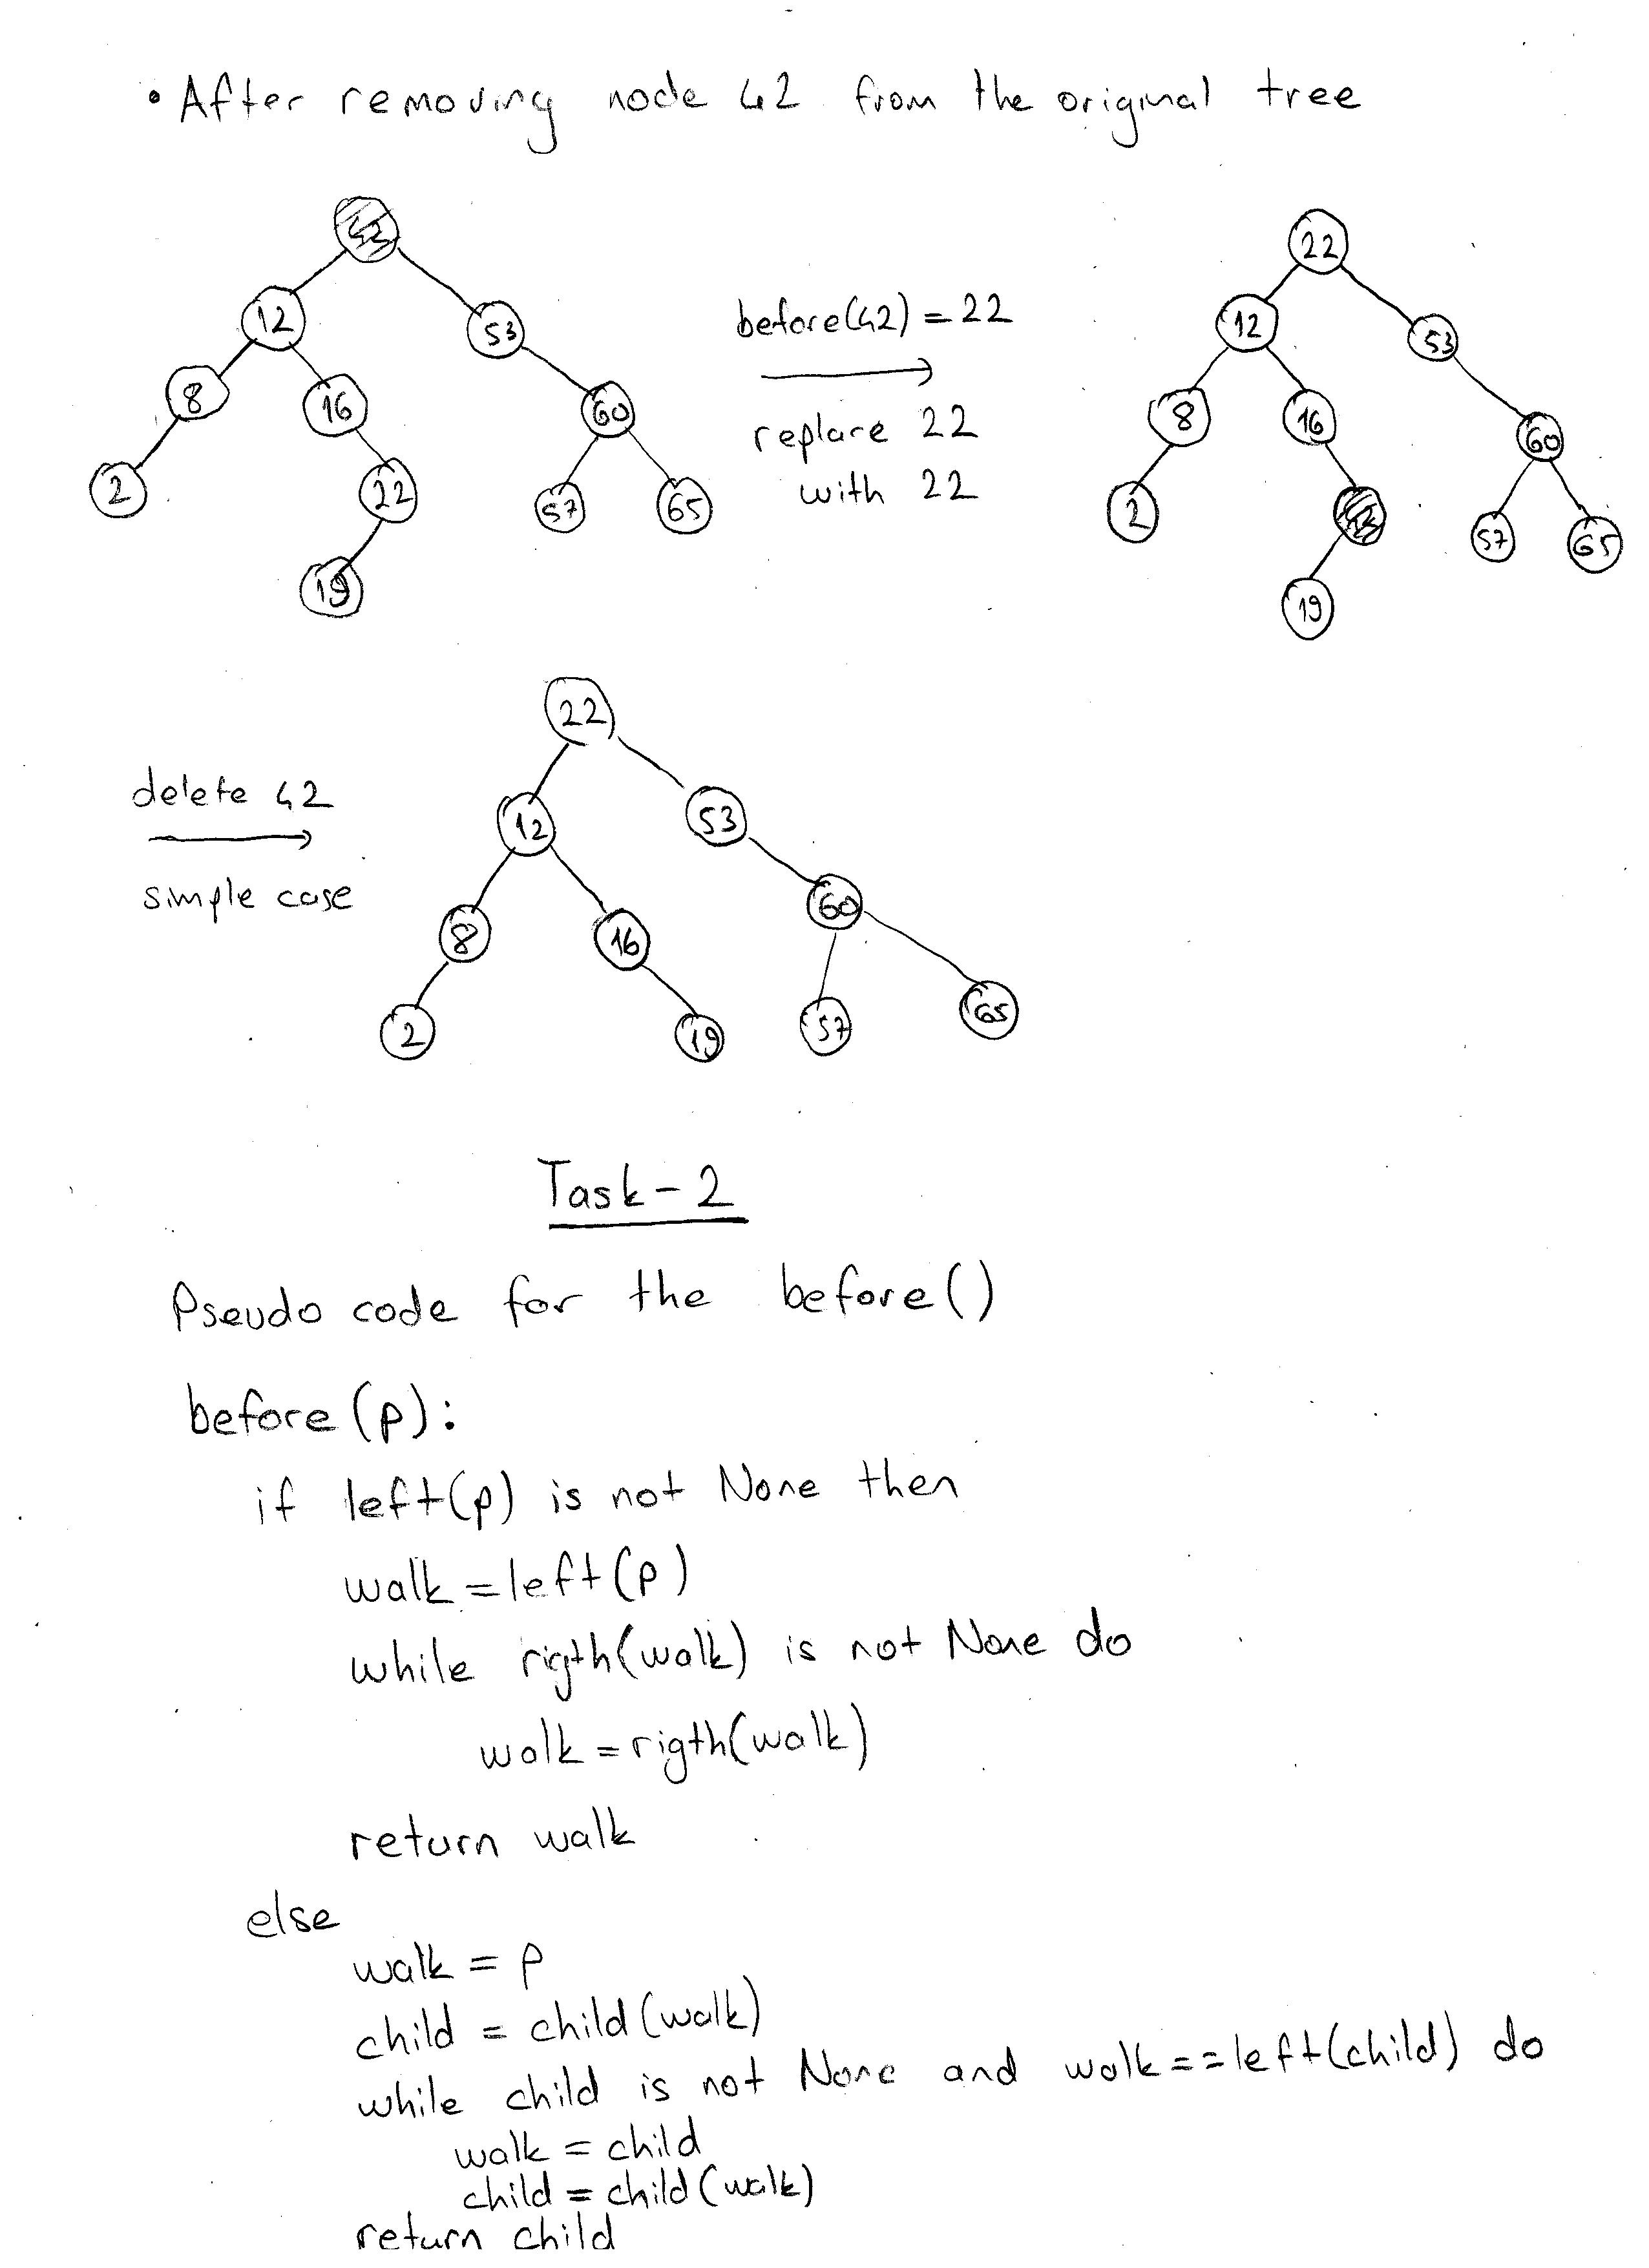 • After removing node 42 from the original tree
42
12 53
8 16 60
2 22 57 65
19
before(42) = 22
replace 22
with 22
22
12 53
8 16 60
2 42 57 65
19
delete 42
simple case
22
12 53
8 16 60
2 19 57 65
Task - 2
Pseudo code for the before()
before(p):
if left(p) is not None then
walk = left(p)
while rigth(walk) is not None do
walk = rigth(walk)
return walk
else
walk = p
child = child(walk)
while child is not None and walk == left(child) do
walk = child
child = child(walk)
return child